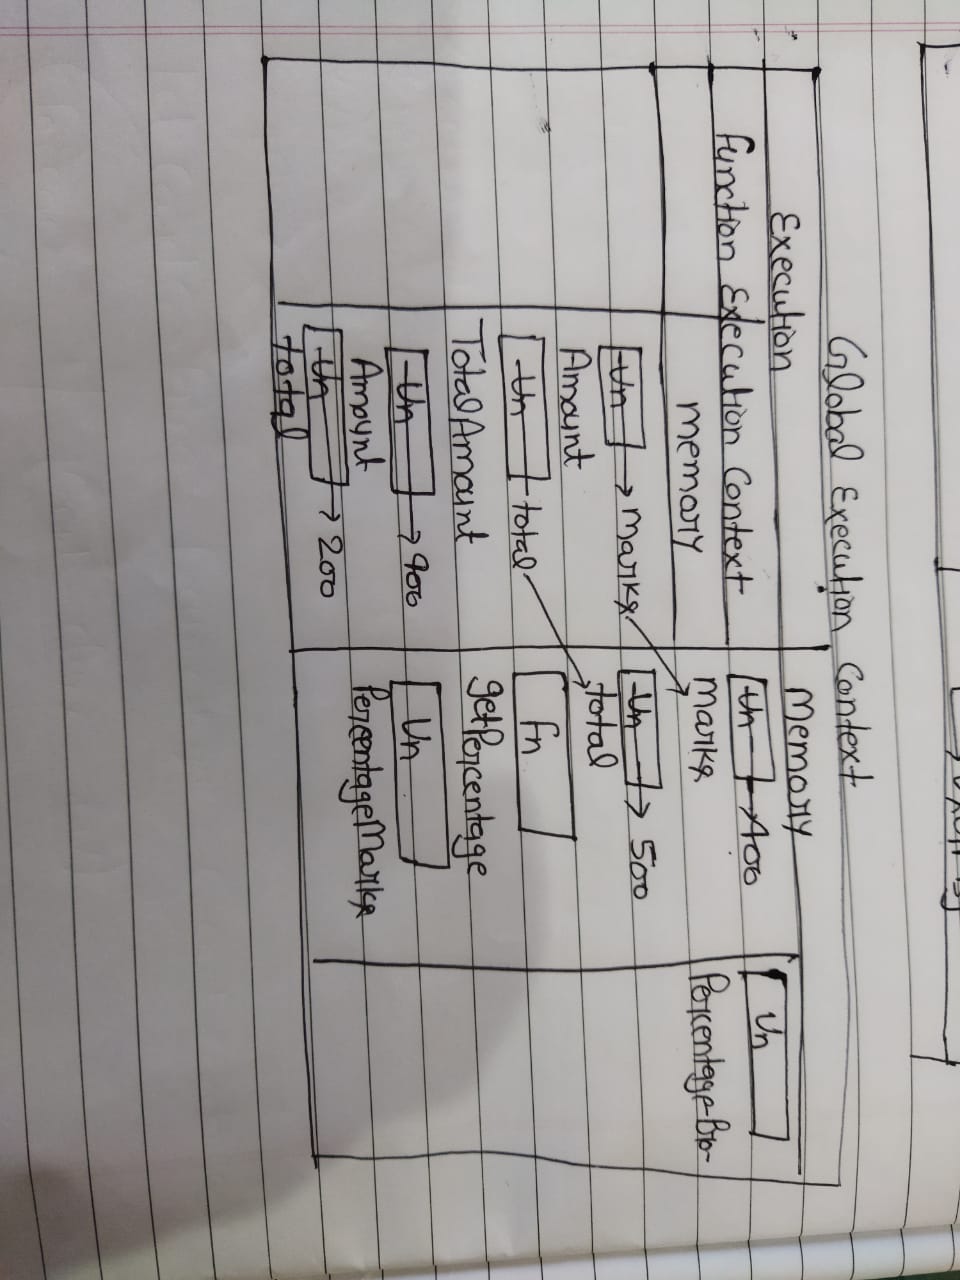 Global Execution Context
Execution
Function Execution Context
memory
Un → marks
Amount
Un total
Total Amount
Un → 900
Amount
Un → 200
total
Memory
Un → 400
marks
Un → 500
total
Fn
getPercentage
Un
PercentageMarks
Un
Percentage-Bro-